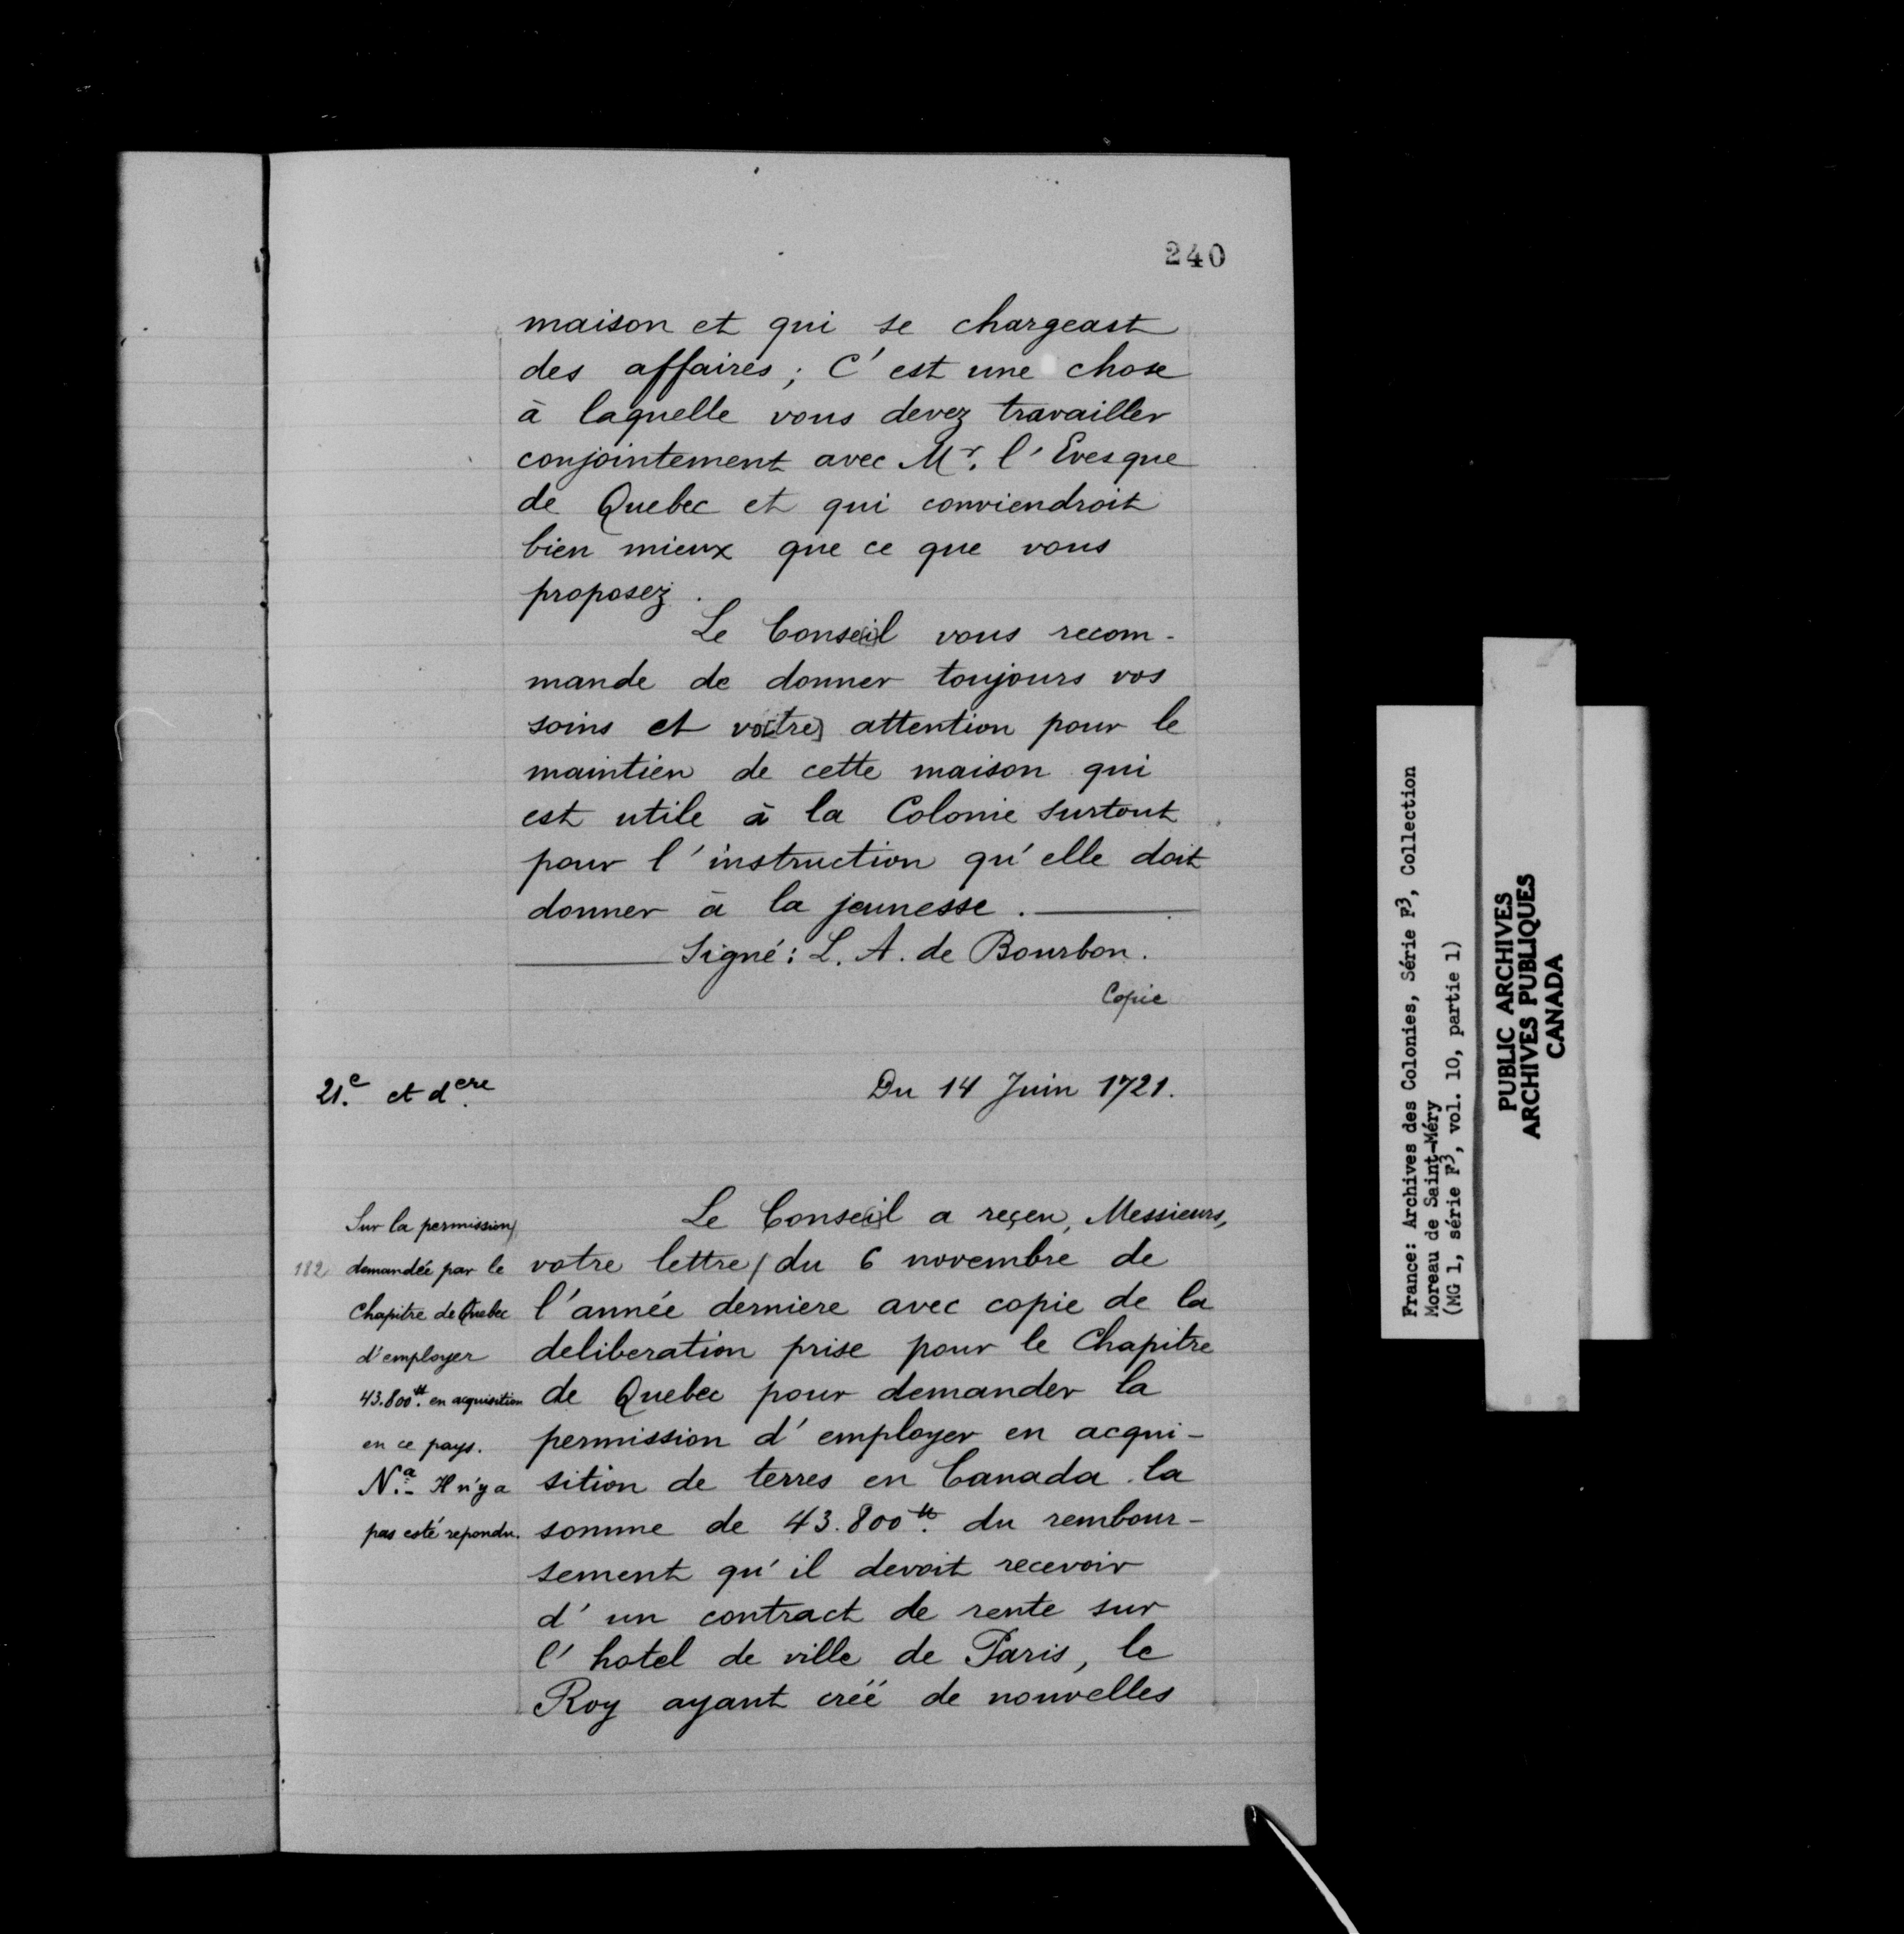 240
maison et qui se chargeast
des affaires ; C'est une chose
à laquelle vous devez travailler
conjointement avec Mr. l'Evesque
de Quebec et qui conviendroit
bien mieux que ce que vous
proposez.
Le Conseil vous recom-
mande de donner toujours vos
soins et vo[tre] attention pour le
maintien de cette maison qui
est utile à la Colonie surtout
pour l'instruction qu'elle doit
donner à la jeunesse.
Signé : L. A. de Bourbon.
Copie
21.e et dere
Du 14 Juin 1721.
Sur la permission
182 demandée par le
Chapitre de Quebec
d'employer
43.800tt. en acquisition
en ce pays.
N.a Il n'y a
pas esté repondu.
Le Conseil a reçeu, Messieurs,
votre lettre / du 6 novembre de
l'année derniere avec copie de la
deliberation prise pour le Chapitre
de Quebec pour demander la
permission d'employer en acqui-
sition de terres en Canada la
somme de 43.800tt. du rembour-
sement qu'il devoit recevoir
d'un contract de rente sur
l'hotel de ville de Paris, le
Roy ayant créé de nouvelles
France: Archives des Colonies, Série F3, Collection
Moreau de Saint-Méry
(MG 1, série F3, vol. 10, partie 1)
PUBLIC ARCHIVES
ARCHIVES PUBLIQUES
CANADA